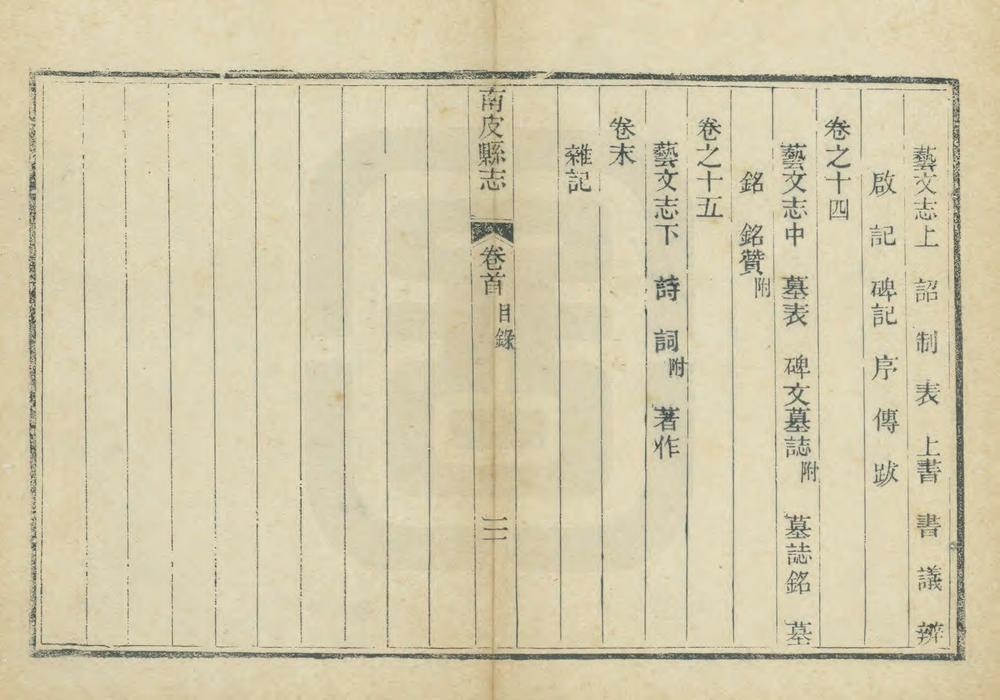 藝文志上 詔 制 表 上書 書 議 辨
啟 記 碑記 序 傳 跋
卷之十四
藝文志中 墓表 碑文墓誌附 墓誌銘 墓
銘 銘贊附
卷之十五
藝文志下 詩 詞附 著作
卷末
雜記
南皮縣志 卷首 目錄 三